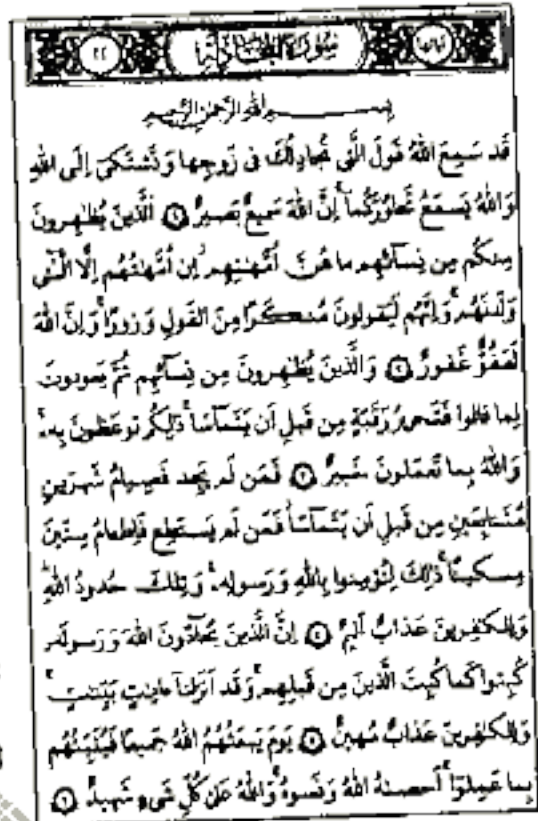 سُورَةُ المُجَادلَةِ ٢٢ آياتها
بِسْمِ اللَّهِ الرَّحْمَٰنِ الرَّحِيمِ
قَد سَمِعَ اللَّهُ قَولَ الَّتِى تُجَٰدِلُكَ فِى زَوجِهَا وَتَشتَكِىٓ إِلَى اللَّهِ
وَاللَّهُ يَسمَعُ تَحَاوُرَكُمَآ إِنَّ اللَّهَ سَمِيعٌ بَصِيرٌ ١ الَّذِينَ يُظَٰهِرُونَ
مِنكُم مِن نِسَآئِهِم مَا هُنَّ أُمَّهَٰتِهِم إِن أُمَّهَٰتُهُم إِلَّا الَّٰٓـِٔى
وَلَدنَهُم وَإِنَّهُم لَيَقُولُونَ مُنكَرًا مِنَ القَولِ وَزُورًا وَإِنَّ اللَّهَ
لَعَفُوٌّ غَفُورٌ ٢ وَالَّذِينَ يُظَٰهِرُونَ مِن نِسَآئِهِم ثُمَّ يَعُودُونَ
لِمَا قَالُوا فَتَحرِيرُ رَقَبَةٍ مِن قَبلِ أَن يَتَمَآسَّا ذَٰلِكُم تُوعَظُونَ بِهِ
وَاللَّهُ بِمَا تَعمَلُونَ خَبِيرٌ ٣ فَمَن لَم يَجِد فَصِيَامُ شَهرَينِ
مُتَتَابِعَينِ مِن قَبلِ أَن يَتَمَآسَّا فَمَن لَم يَستَطِع فَإِطعَامُ سِتِّينَ
مِسكِينًا ذَٰلِكَ لِتُؤمِنُوا بِاللَّهِ وَرَسُولِهِ وَتِلكَ حُدُودُ اللَّهِ
وَلِلكَٰفِرِينَ عَذَابٌ أَلِيمٌ ٤ إِنَّ الَّذِينَ يُحَآدُّونَ اللَّهَ وَرَسُولَهُ
كُبِتُوا كَمَا كُبِتَ الَّذِينَ مِن قَبلِهِم وَقَد أَنزَلنَآ ءَايَٰتٍ بَيِّنَٰتٍ
وَلِلكَٰفِرِينَ عَذَابٌ مُهِينٌ ٥ يَومَ يَبعَثُهُمُ اللَّهُ جَمِيعًا فَيُنَبِّئُهُم
بِمَا عَمِلُوٓا أَحصَىٰهُ اللَّهُ وَنَسُوهُ وَاللَّهُ عَلَىٰ كُلِّ شَىءٍ شَهِيدٌ ٦